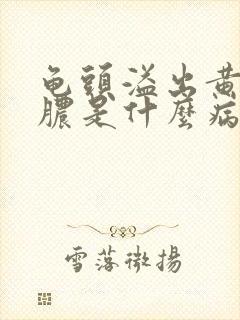 龟頭溢出黄
膿是什麼病
雪落微揚